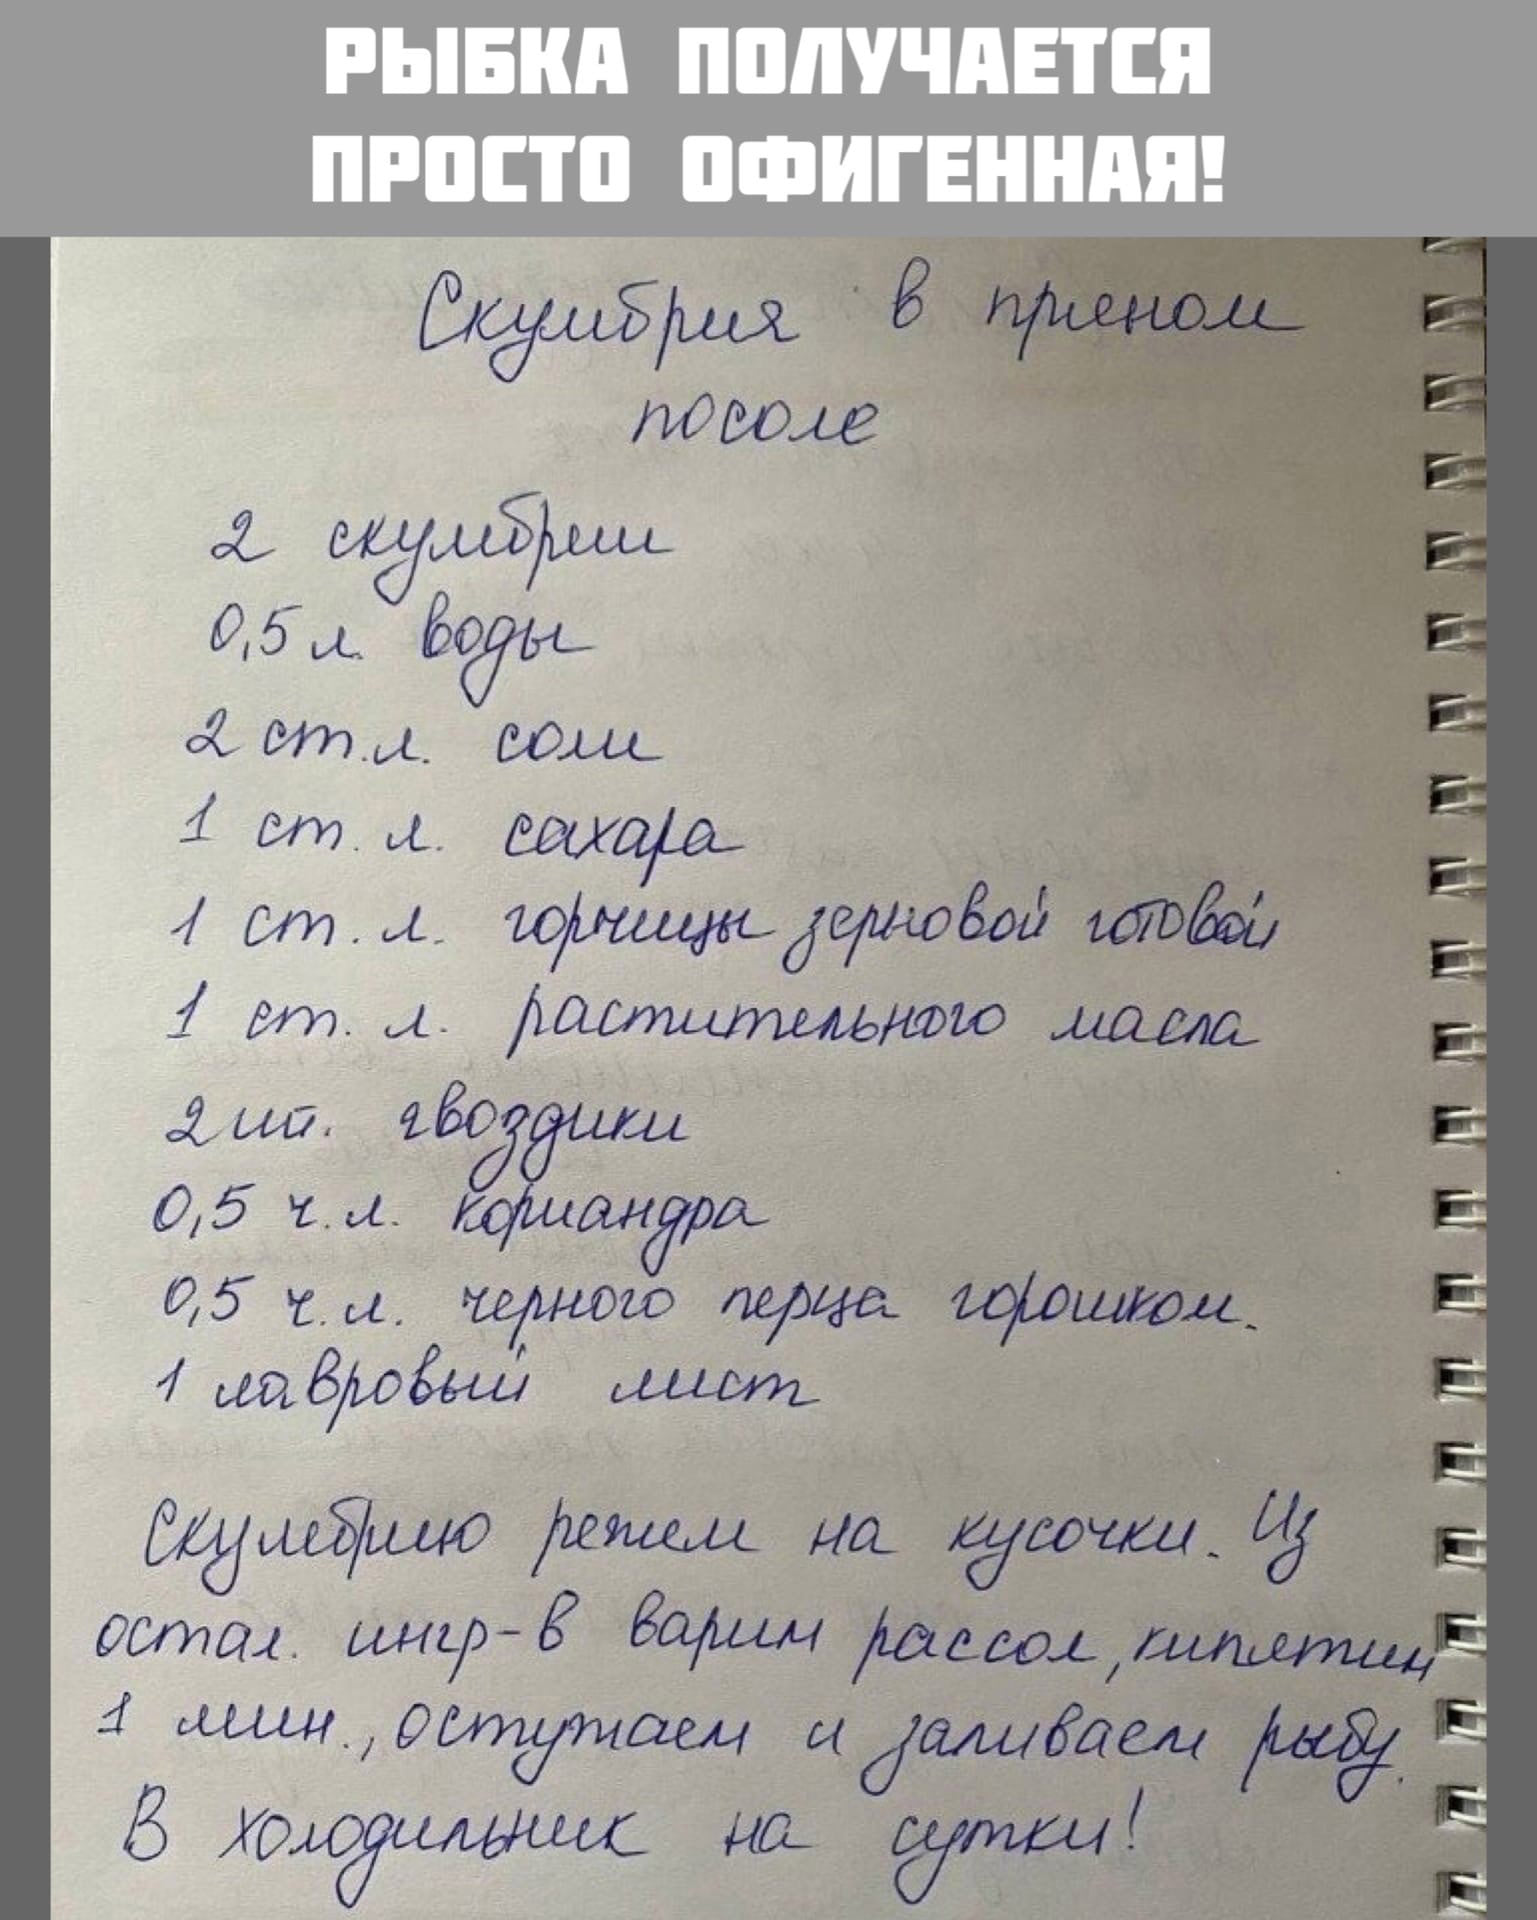 РЫБКА ПОЛУЧАЕТСЯ
ПРОСТО ОФИГЕННАЯ!
Скумбрия в пряном
посоле
2 скумбрии
0,5 л. воды
2 ст.л. соли
1 ст. л. сахара
1 ст. л. горчицы зерновой готовой
1 ст. л. растительного масла
2 шт. гвоздики
0,5 ч.л. кориандра
0,5 ч.л. черного перца горошком.
1 лавровый лист
Скумбрию режем на кусочки. Из
остал. ингр-в варим рассол, кипятим
1 мин., остужаем и заливаем рыбу.
В холодильник на сутки!